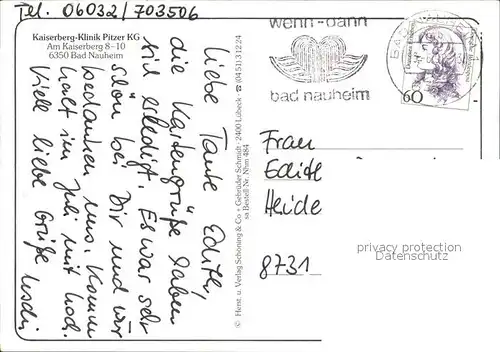 Tel. 06032/703506
Kaiserberg-Klinik Pitzer KG
Am Kaiserberg 8-10
6350 Bad Nauheim
Liebe Tante Edith,
die Kartengrüße haben
wir erledigt. Es war sehr
schön bei Dir und wir
bedanken uns. Komm
halt im Juli mit hoch.
Viele liebe Grüße
© Herst. u. Verlag Schöning & Co + Gebrüder Schmidt · 2400 Lübeck · ☎ (04 51) 3 12 24
sa Bestell-Nr. Nhm 484
wenn-dann
bad nauheim
60
Frau
Edith
Heide
8731
privacy protection
Datenschutz